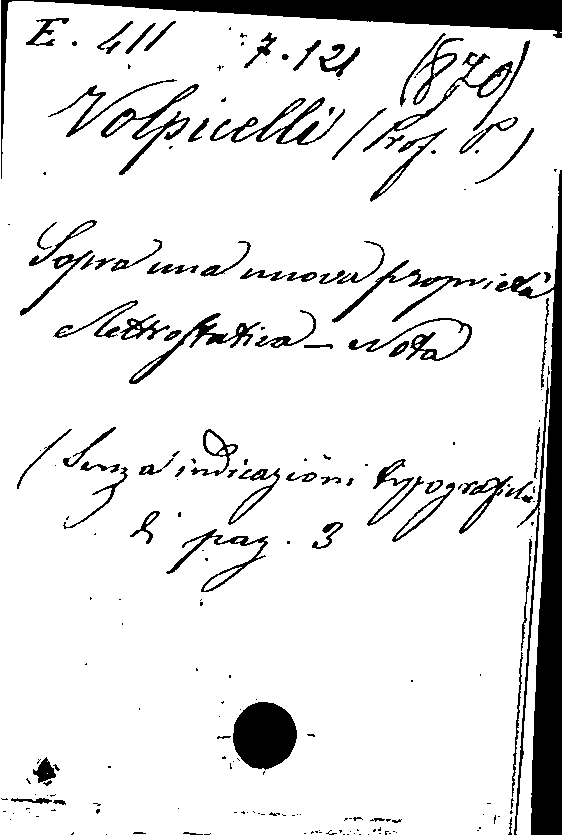 E. 411 7.121 (870)
Volpicelli (Prof. P.)
Sopra una nuova proprietà
elettrostatica - Nota
(Senza indicazioni tipografiche)
di pag. 3